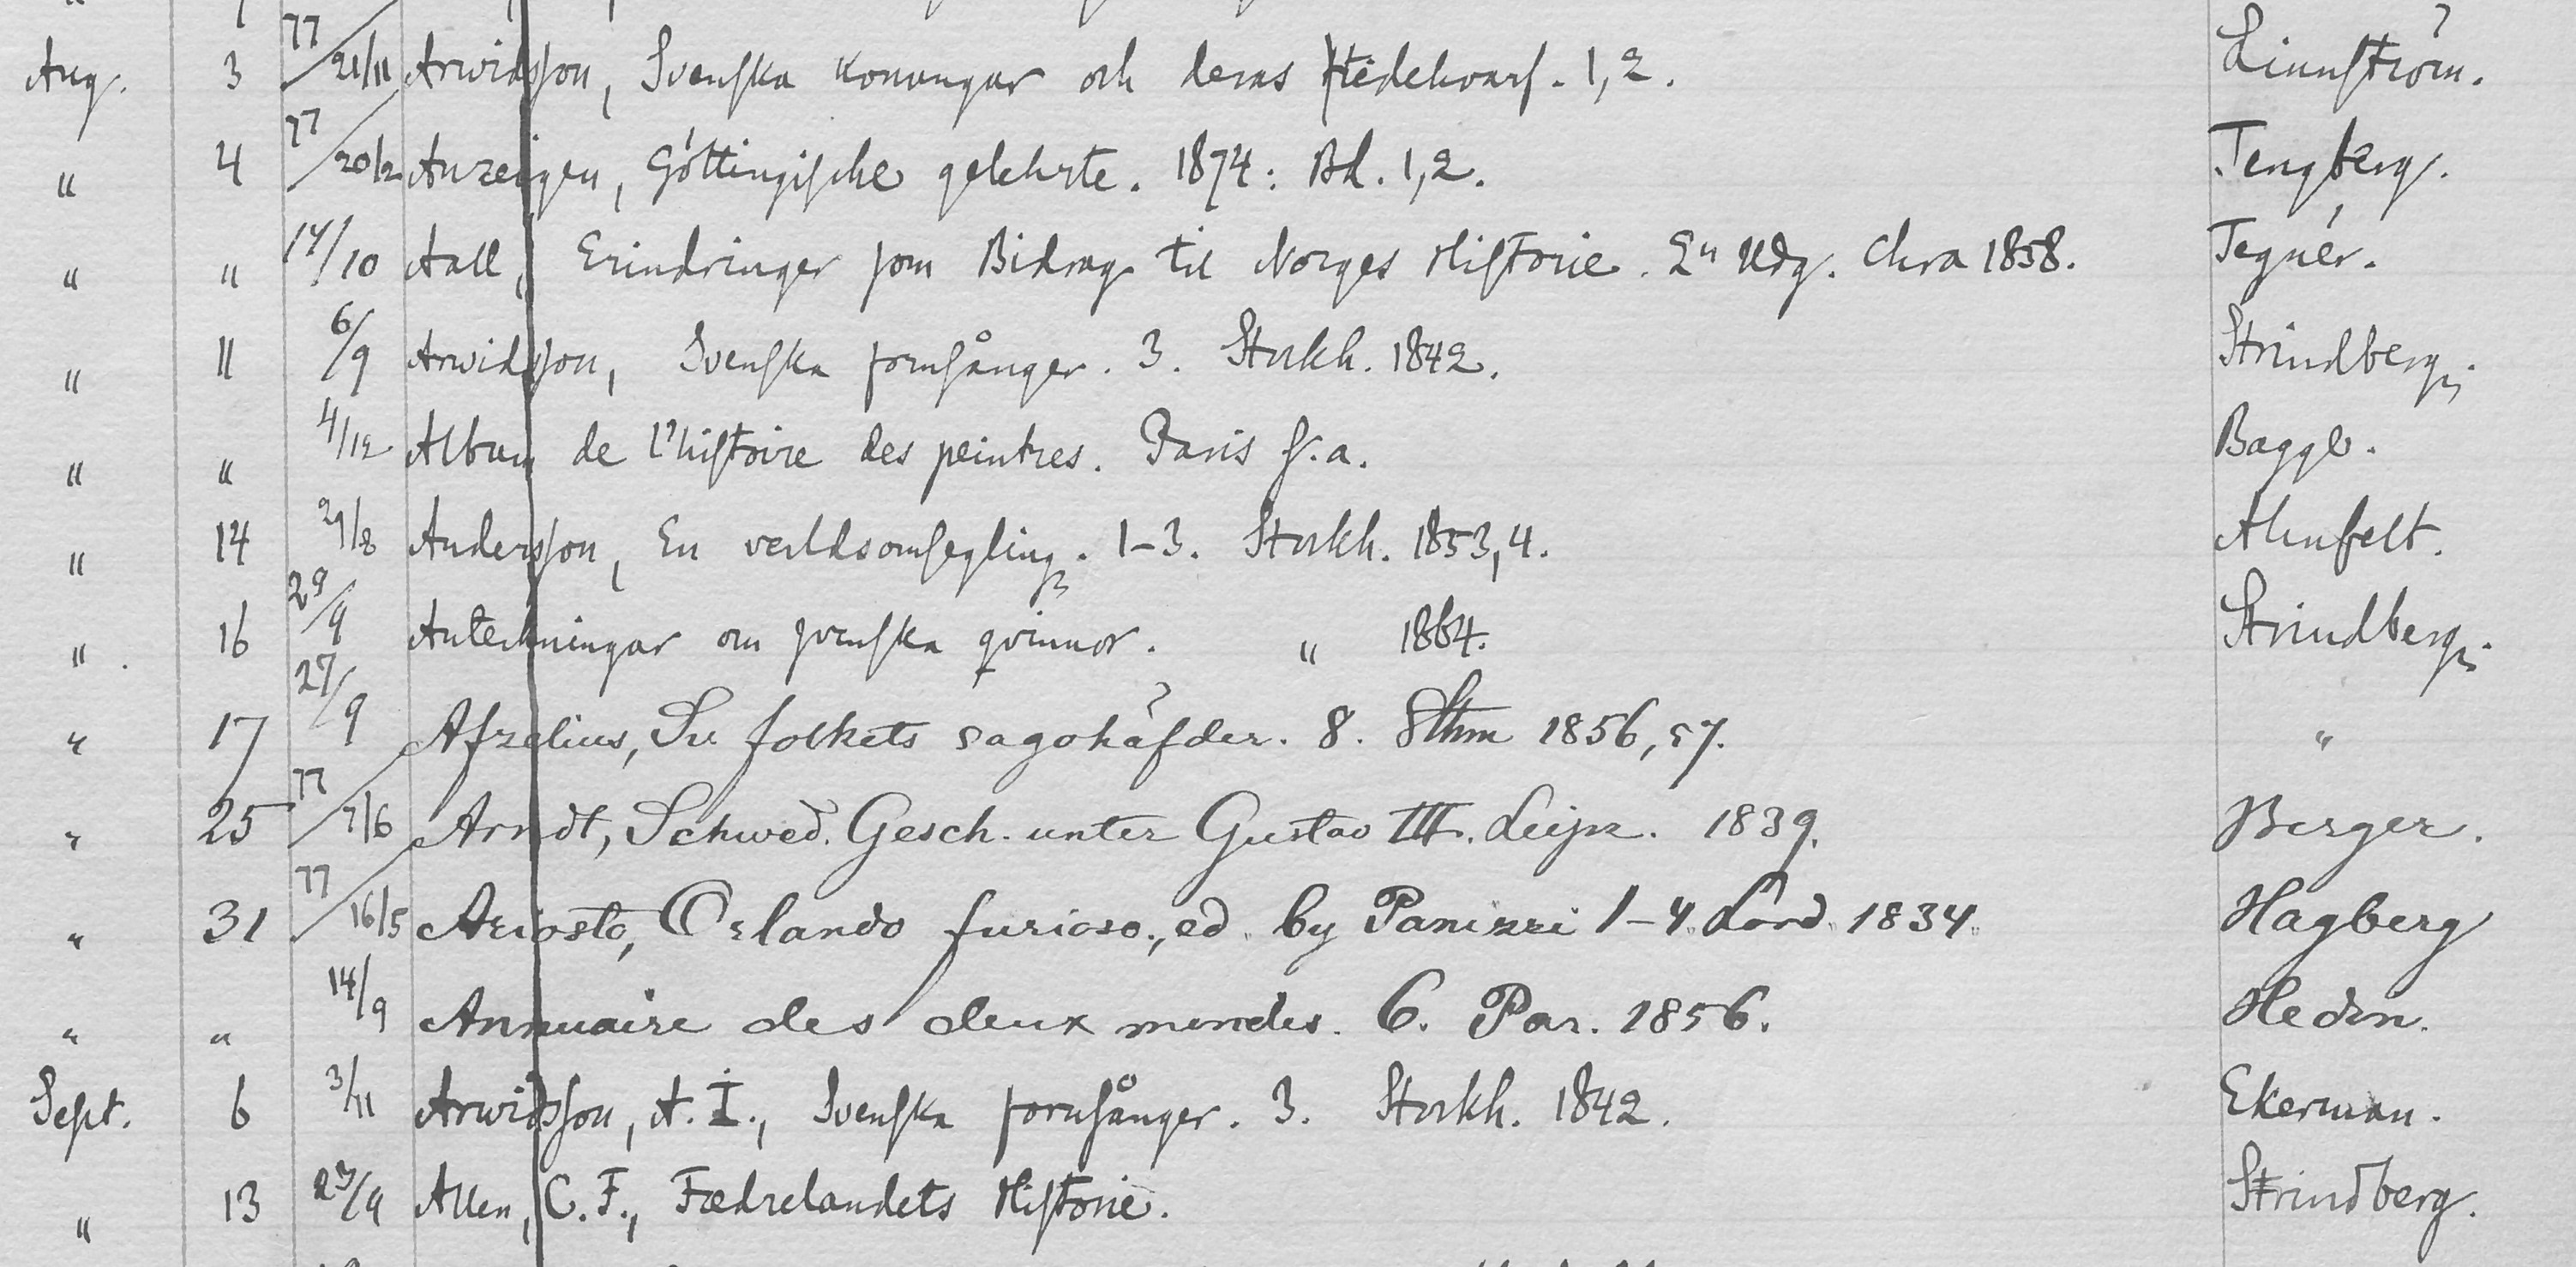 Aug. 3 77/21/11 Arwidsson, Svenska konungar och deras tidehvarf. 1, 2. Linnström.
" 4 77/20/2 Anzeigen, Göttingische gelehrte. 1874: Bd. 1, 2. Tengberg.
" " 14/10 Aall, Erindringer som Bidrag til Norges Historie. 2n Udg. Chra 1858. Tegnér.
" 11 6/9 Arwidsson, Svenska fornsånger. 3. Stockh. 1842. Strindberg.
" " 4/12 Album de l'histoire des peintres. Paris s. a. Bagge.
" 14 29/8 Andersson, En verldsomsegling. 1-3. Stockh. 1853, 4. Alnfelt.
" 16 29/9 Anteckningar om svenska qvinnor. " 1864. Strindberg.
" 17 27/9 Afzelius, Sv folkets sagohäfder. 8. Sthm 1856, 57. "
" 25 77/7/6 Arndt, Schwed. Gesch. unter Gustav III. Leipz. 1839. Berger.
" 31 77/16/5 Ariosto, Orlando furioso, ed. by Panizzi 1-4. Lond. 1834. Hagberg
" " 14/9 Annuaire des deux mondes. 6. Par. 1856. Hedin.
Sept. 6 3/11 Arwidsson, A. I., Svenska fornsånger. 3. Stockh. 1842. Ekerman.
" 13 23/9 Allen, C. F., Fædrelandets Historie. Strindberg.